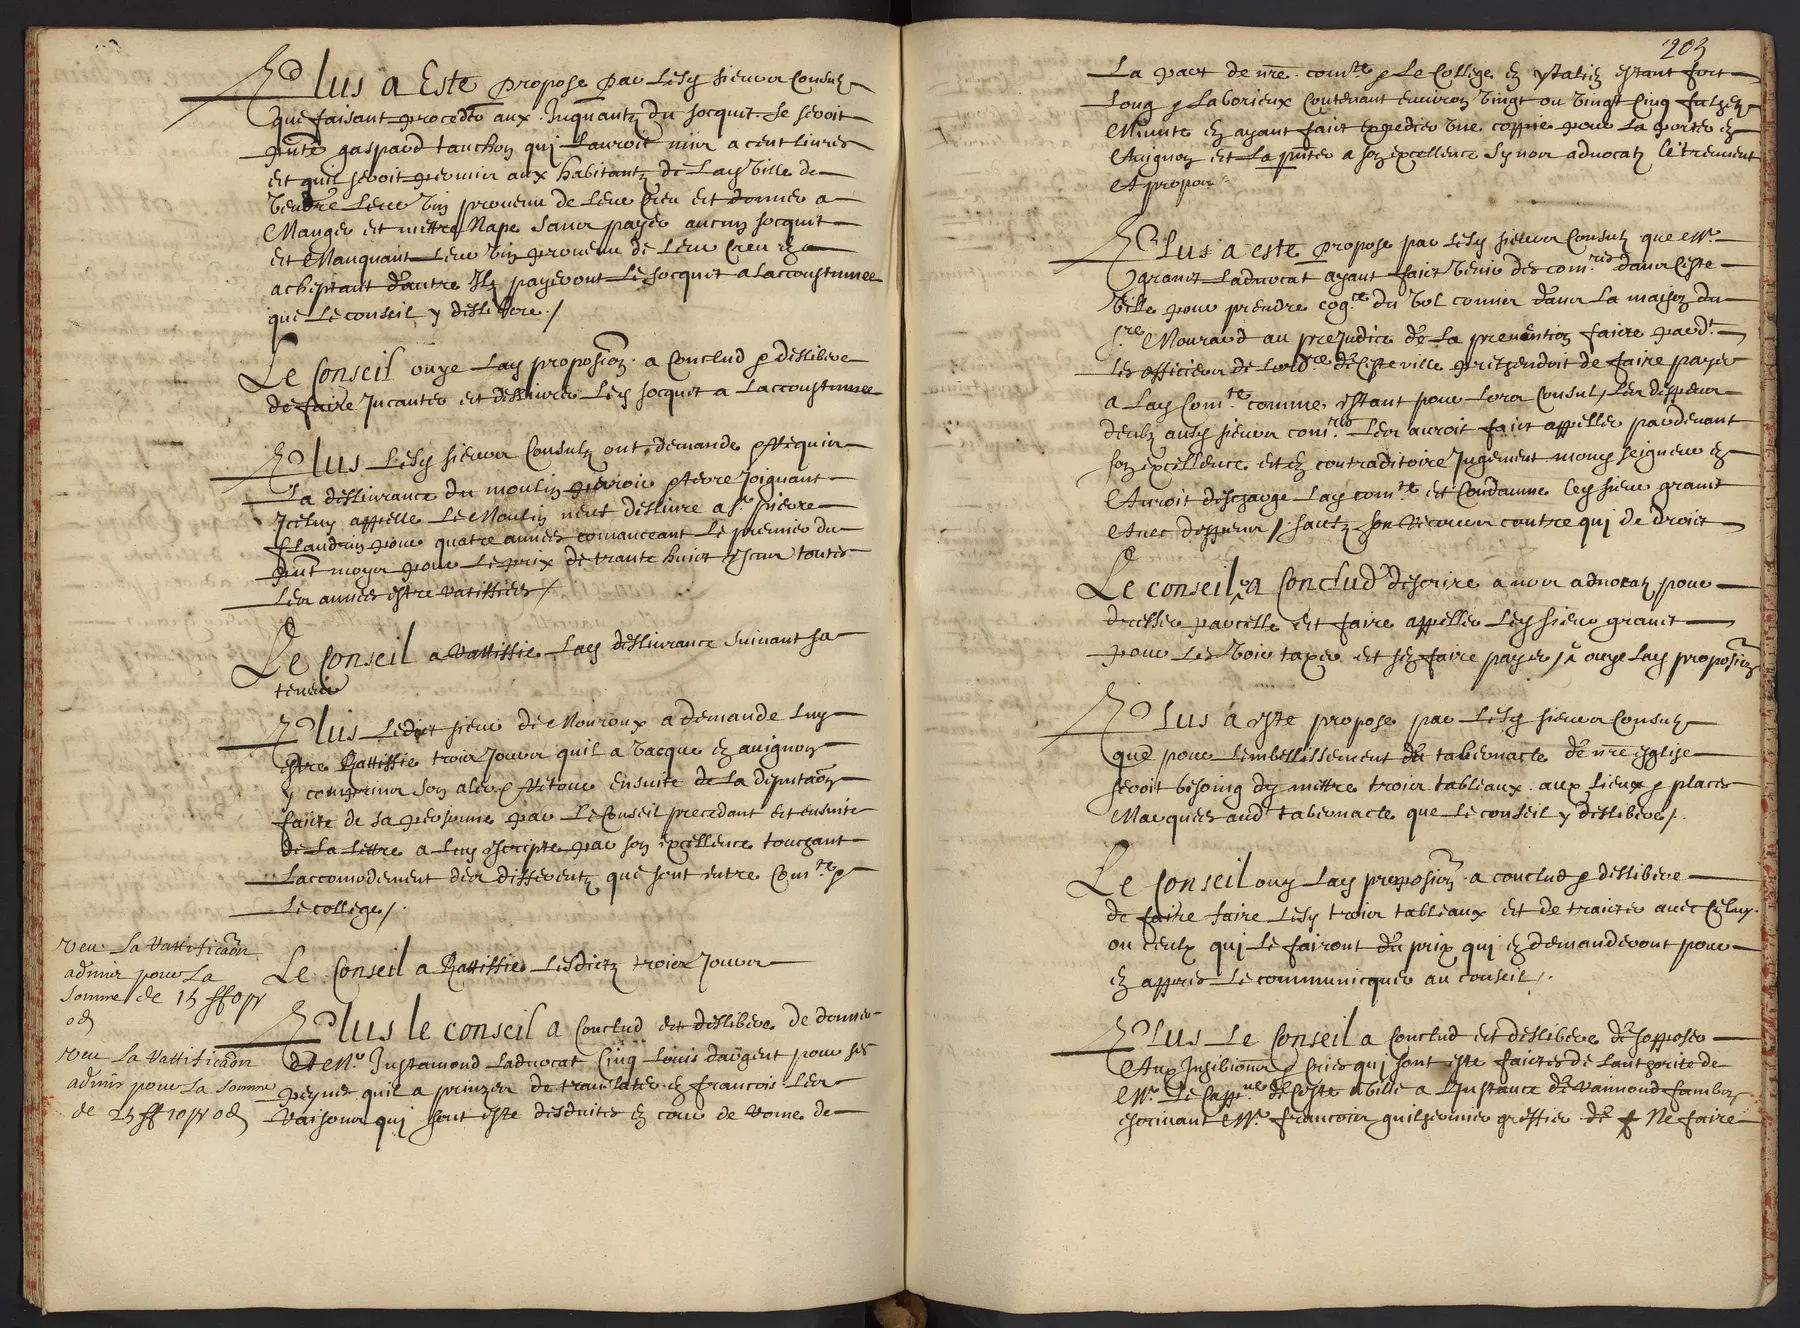 Plus a Este propose par lesd sieurs Consulz
que faisant proceder aux Inquantz du socquet se seroit
pnté gaspard tauchon qui lauroit mis a cent livres
et quil seroit permis aux habitantz de lad Ville de
Vendre leur Vin provenu de leur Creu et donner a
Manger et mettre Nape sans payer aucun socquet
et Manquant leur Vin provenu de leur Creu en
acheptant dautre Ilz payeront le socquet a laccoustumee
que le conseil y deslibere /
Le Conseil ouye lad proposion a Conclud & deslibere
de faire Incanter et deslivrer led socquet a laccoustumee
Plus lesd sieurs Consulz ont demande &
la deslivrance du moulin & terre Joignant
Icelluy appelle le Moulin neuf deslivre a sr pierre
flandrin pour quatre annees comanceant le premier du
pnt moys pour le prix de trante huict escus toutes
les annees estre rattiffiee /
Le Conseil a Rattiffie lad deslivrance suivant sa
teneur
Plus ledit sieur de Mouroux a demande luy
estre Rattiffie trois Jours quil a Vacque en avignon
y comprins son aler & Retour ensuite de la deputaon
faicte de sa personne par le Conseil precedant et ensuite
de la lettre a luy escripte par son excellence touchant
laccomodement des differentz que sont entre Comte &
le college /.
veu la Rattificaon
admis pour la
somme de 15 ff 0 p
0 d
Le Conseil a Rattiffie lesdictz trois Jours
Plus le conseil a Conclud et deslibere de donner
a Mr Justamond ladvocat Cinq Louis dargent pour ses
peynes quil a prinzes de translater en francois les
Raisons qui sont este desduites en cour de Rome de
veu la Rattificaon
admis pour la somme
de 25 ff 10 p 0 d
203
La part de nre comte & le College en ytalien estant fort
long & laborieux contenant environ Vingt ou Vingt Cinq
Minute en ayant faict expedier Une coppie pour la porter en
Avignon et la pnter a son excellence sy nos advocatz le treuvent
a propos
Plus a este propose par lesd sieurs Consulz que Mr
granet ladvocat ayant faict Venir des comres dans ceste
Ville pour prendre cogce du Vol comis dans la maison du
sre Mouraud au prejudice de la prevention faicte par
les officiers de lordre de ceste ville pretzendoit de faire payer
a lad Comte comme estant pour lors Consul les despens
deubz ausd sieurs comres les auroit faict appeller pardevant
son excellence et en contraditoire Jugement mond seigneur
Auroit descharge lad comte et Condamne led sieur granet
Avec despens / sauf son recours contre qui de droict
Le conseil a Conclud descrire a nos advocatz pour
dresser parcelle et faire appeller led sieur granet
pour les Voir taxer et sen faire payer / ouye lad proposion
Plus a este propose par lesd sieurs Consulz
que pour lembellissement du tabernacle de nre esglise
seroit besoing dy mettre trois tableaux aux lieux & places
Marquees aud tabernacle que le conseil y deslibere /.
Le Conseil ouy lad proposion a conclud & deslibere
de faire faire lesd trois tableaux et de traicter avec Celuy
ou ceulx qui le fairont du prix qui en demanderont pour
en appres le communicquer au conseil /.
Plus Le Conseil a Conclud et deslibere de sopposer
Aux Inhibions & cries qui sont este faictes de lauthorite de
Mr le Cappne de ceste Ville a lInstance de Raimond
escrivant Mr francois guilhermier greffier de Ne faire